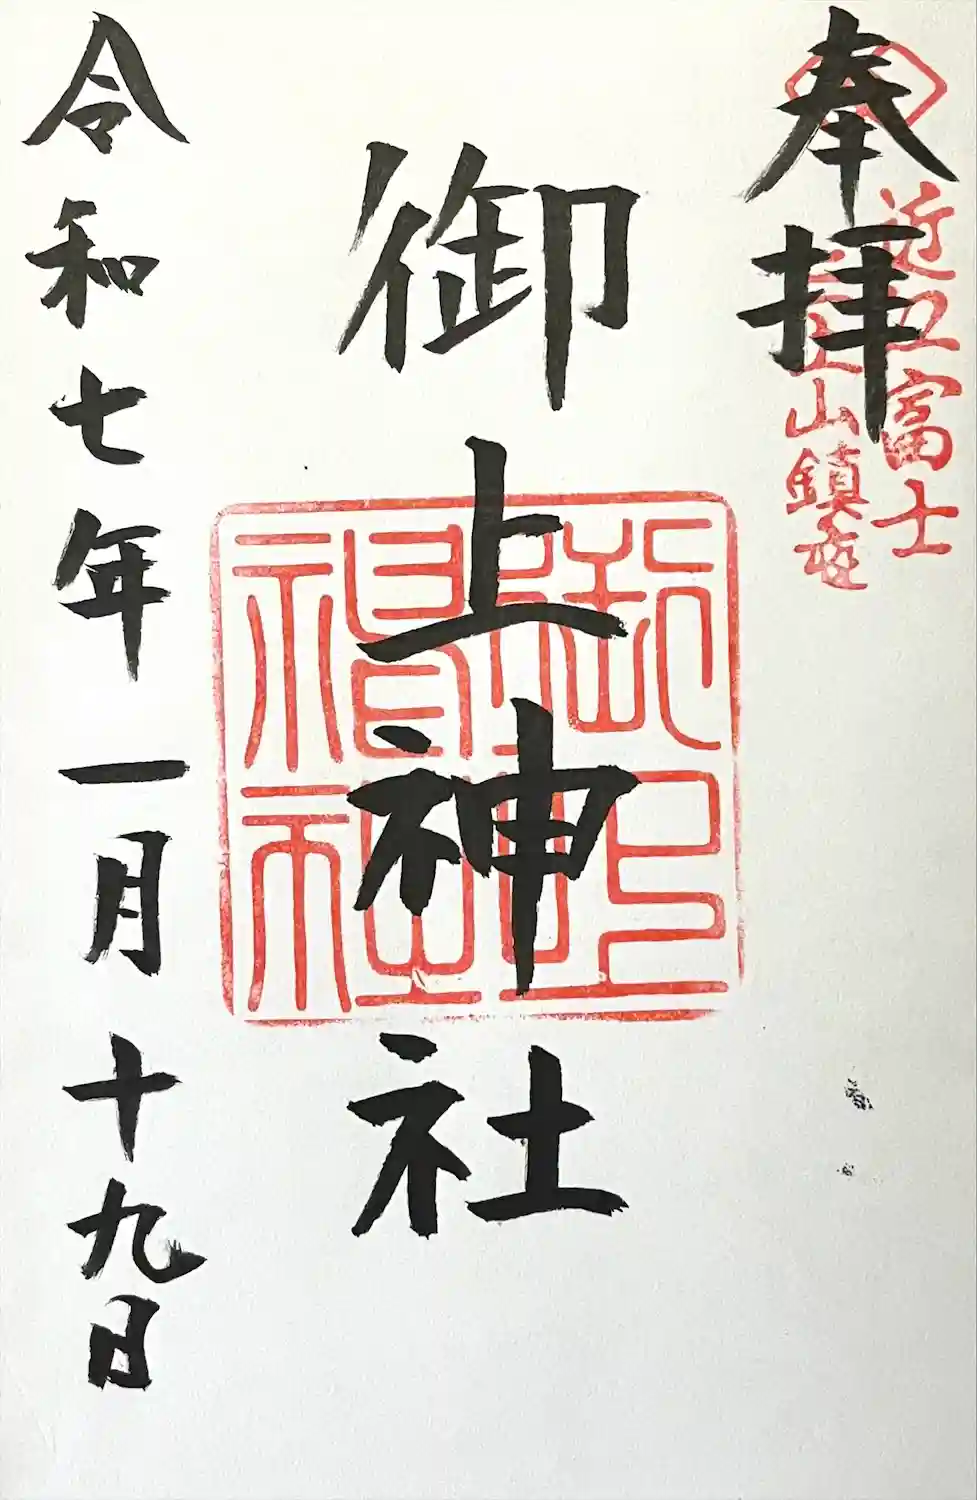 奉拝
近江富士
三上山鎮座
御上神社
御上神社
令和七年一月十九日